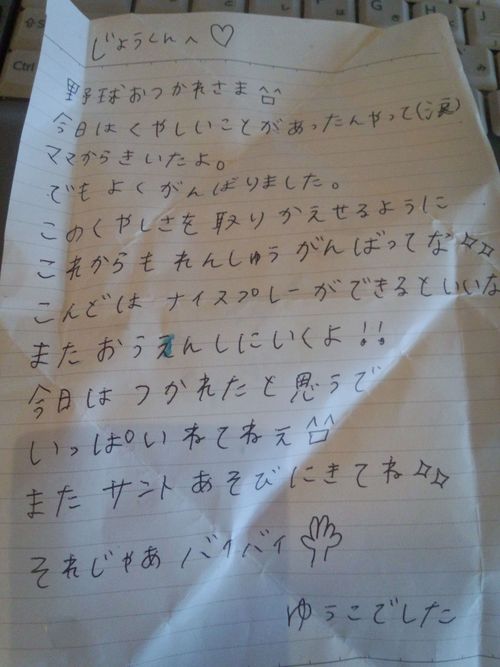 じょうくんへ♡
野球おつかれさま^□^
今日はくやしいことがあったんやって(涙)
ママからきいたよ。
でもよくがんばりました。
このくやしさを取りかえせるように
これからもれんしゅうがんばってな✧✧
こんどはナイスプレーができるといいな
またおうえんしにいくよ!!
今日はつかれたと思うで
いっぱいねてねぇ^□^
またサントあそびにきてね✧✧
それじゃあバイバイ
ゆうこでした